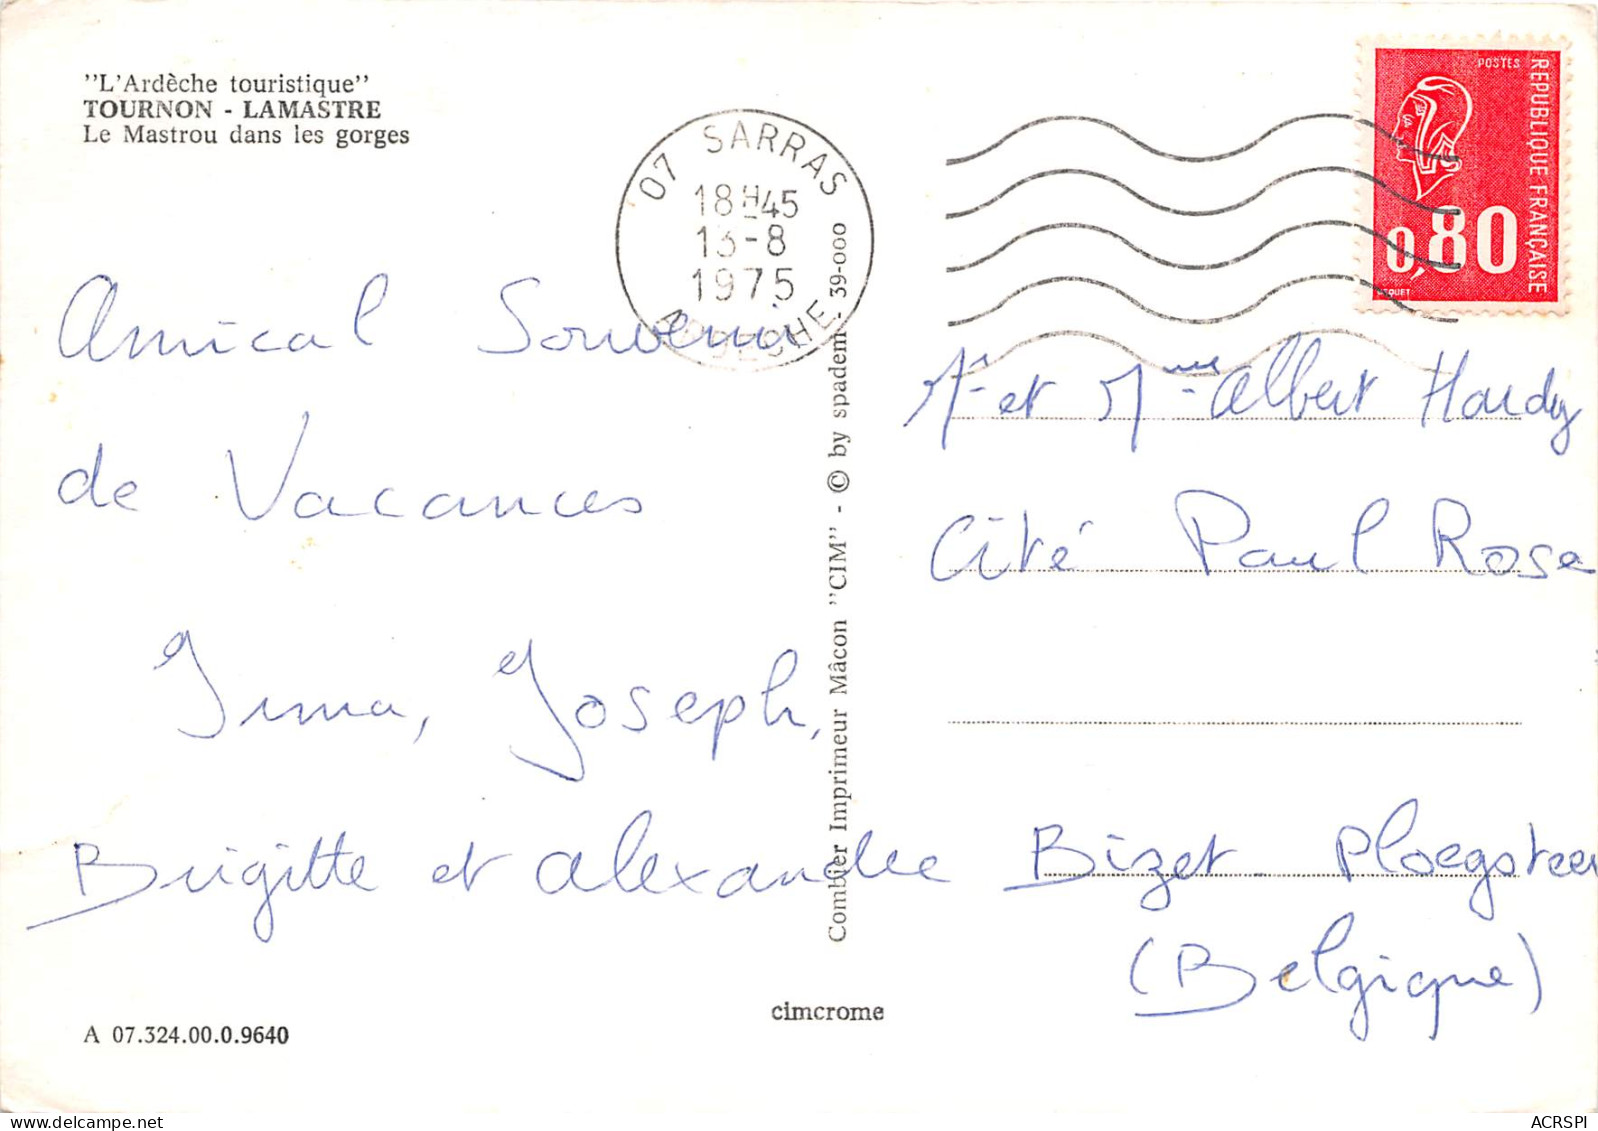 "L'Ardèche touristique"
TOURNON - LAMASTRE
Le Mastrou dans les gorges
07 SARRAS
18H45
13-8
1975
ARDECHE
POSTES
REPUBLIQUE FRANÇAISE
0,80
BEQUET
Amical Souvenir
de Vacances
Irma, Joseph,
Brigitte et Alexandre
Mr et Mme Albert Hardy
Cité Paul Rose
Bizet Ploegsteer
(Belgique)
Combier Imprimeur Mâcon "CIM" - © by spadem 39-000
cimcrome
A 07.324.00.0.9640
delcampe.net
ACRSPI